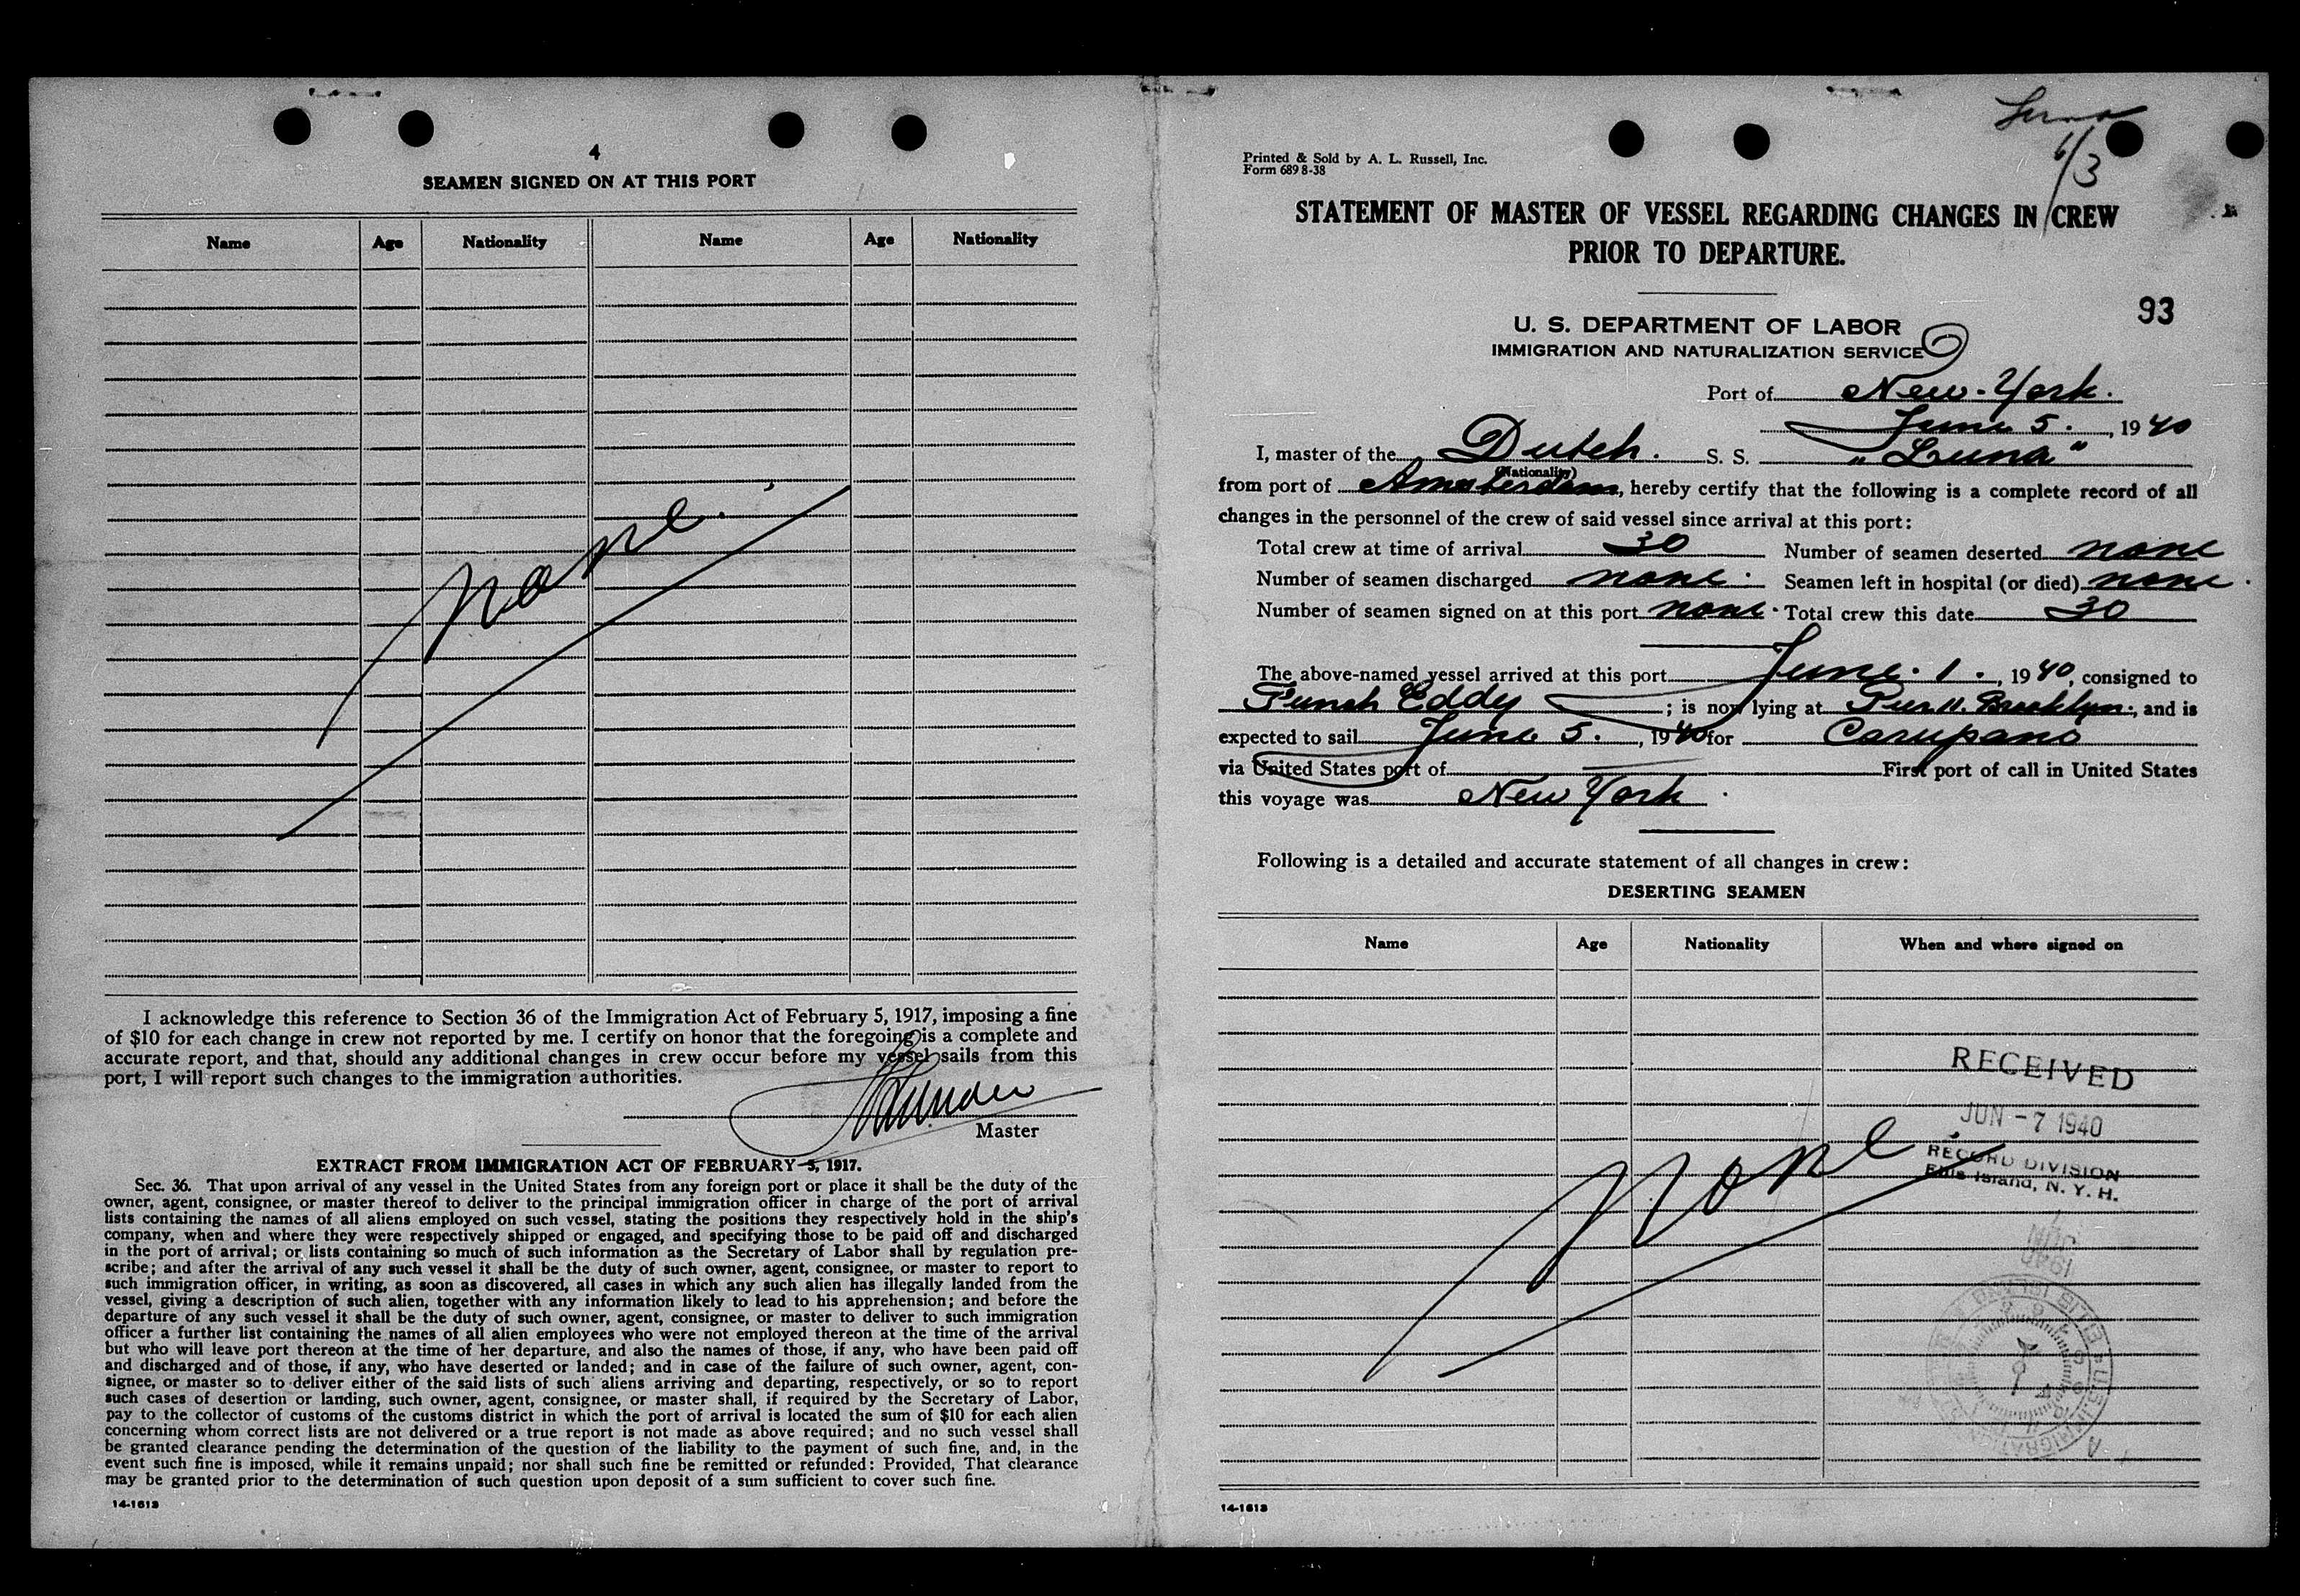 4
SEAMEN SIGNED ON AT THIS PORT
Name Age Nationality Name Age Nationality
None.
I acknowledge this reference to Section 36 of the Immigration Act of February 5, 1917, imposing a fine
of $10 for each change in crew not reported by me. I certify on honor that the foregoing is a complete and
accurate report, and that, should any additional changes in crew occur before my vessel sails from this
port, I will report such changes to the immigration authorities.
Master
EXTRACT FROM IMMIGRATION ACT OF FEBRUARY 5, 1917.
Sec. 36. That upon arrival of any vessel in the United States from any foreign port or place it shall be the duty of the
owner, agent, consignee, or master thereof to deliver to the principal immigration officer in charge of the port of arrival
lists containing the names of all aliens employed on such vessel, stating the positions they respectively hold in the ship's
company, when and where they were respectively shipped or engaged, and specifying those to be paid off and discharged
in the port of arrival; or lists containing so much of such information as the Secretary of Labor shall by regulation pre-
scribe; and after the arrival of any such vessel it shall be the duty of such owner, agent, consignee, or master to report to
such immigration officer, in writing, as soon as discovered, all cases in which any such alien has illegally landed from the
vessel, giving a description of such alien, together with any information likely to lead to his apprehension; and before the
departure of any such vessel it shall be the duty of such owner, agent, consignee, or master to deliver to such immigration
officer a further list containing the names of all alien employees who were not employed thereon at the time of the arrival
but who will leave port thereon at the time of her departure, and also the names of those, if any, who have been paid off
and discharged and of those, if any, who have deserted or landed; and in case of the failure of such owner, agent, con-
signee, or master so to deliver either of the said lists of such aliens arriving and departing, respectively, or so to report
such cases of desertion or landing, such owner, agent, consignee, or master shall, if required by the Secretary of Labor,
pay to the collector of customs of the customs district in which the port of arrival is located the sum of $10 for each alien
concerning whom correct lists are not delivered or a true report is not made as above required; and no such vessel shall
be granted clearance pending the determination of the question of the liability to the payment of such fine, and, in the
event such fine is imposed, while it remains unpaid; nor shall such fine be remitted or refunded: Provided, That clearance
may be granted prior to the determination of such question upon deposit of a sum sufficient to cover such fine.
14-1613
Luna
6/3
Printed & Sold by A. L. Russell, Inc.
Form 689 8-38
STATEMENT OF MASTER OF VESSEL REGARDING CHANGES IN CREW
PRIOR TO DEPARTURE.
93
U. S. DEPARTMENT OF LABOR
IMMIGRATION AND NATURALIZATION SERVICE
Port of New-York.
June 5. , 1940
I, master of the Dutch. S. S. "Luna"
(Nationality)
from port of Amsterdam, hereby certify that the following is a complete record of all
changes in the personnel of the crew of said vessel since arrival at this port:
Total crew at time of arrival 30 Number of seamen deserted none
Number of seamen discharged none. Seamen left in hospital (or died) none.
Number of seamen signed on at this port none. Total crew this date 30
The above-named vessel arrived at this port June. 1. , 1940, consigned to
Funch Eddy ; is now lying at Pier 11. Brooklyn., and is
expected to sail June 5. , 1940 for Carupano
via United States port of First port of call in United States
this voyage was New York.
Following is a detailed and accurate statement of all changes in crew:
DESERTING SEAMEN
Name Age Nationality When and where signed on
None.
RECEIVED
JUN - 7 1940
RECORD DIVISION
Ellis Island, N. Y. H.
14-1613